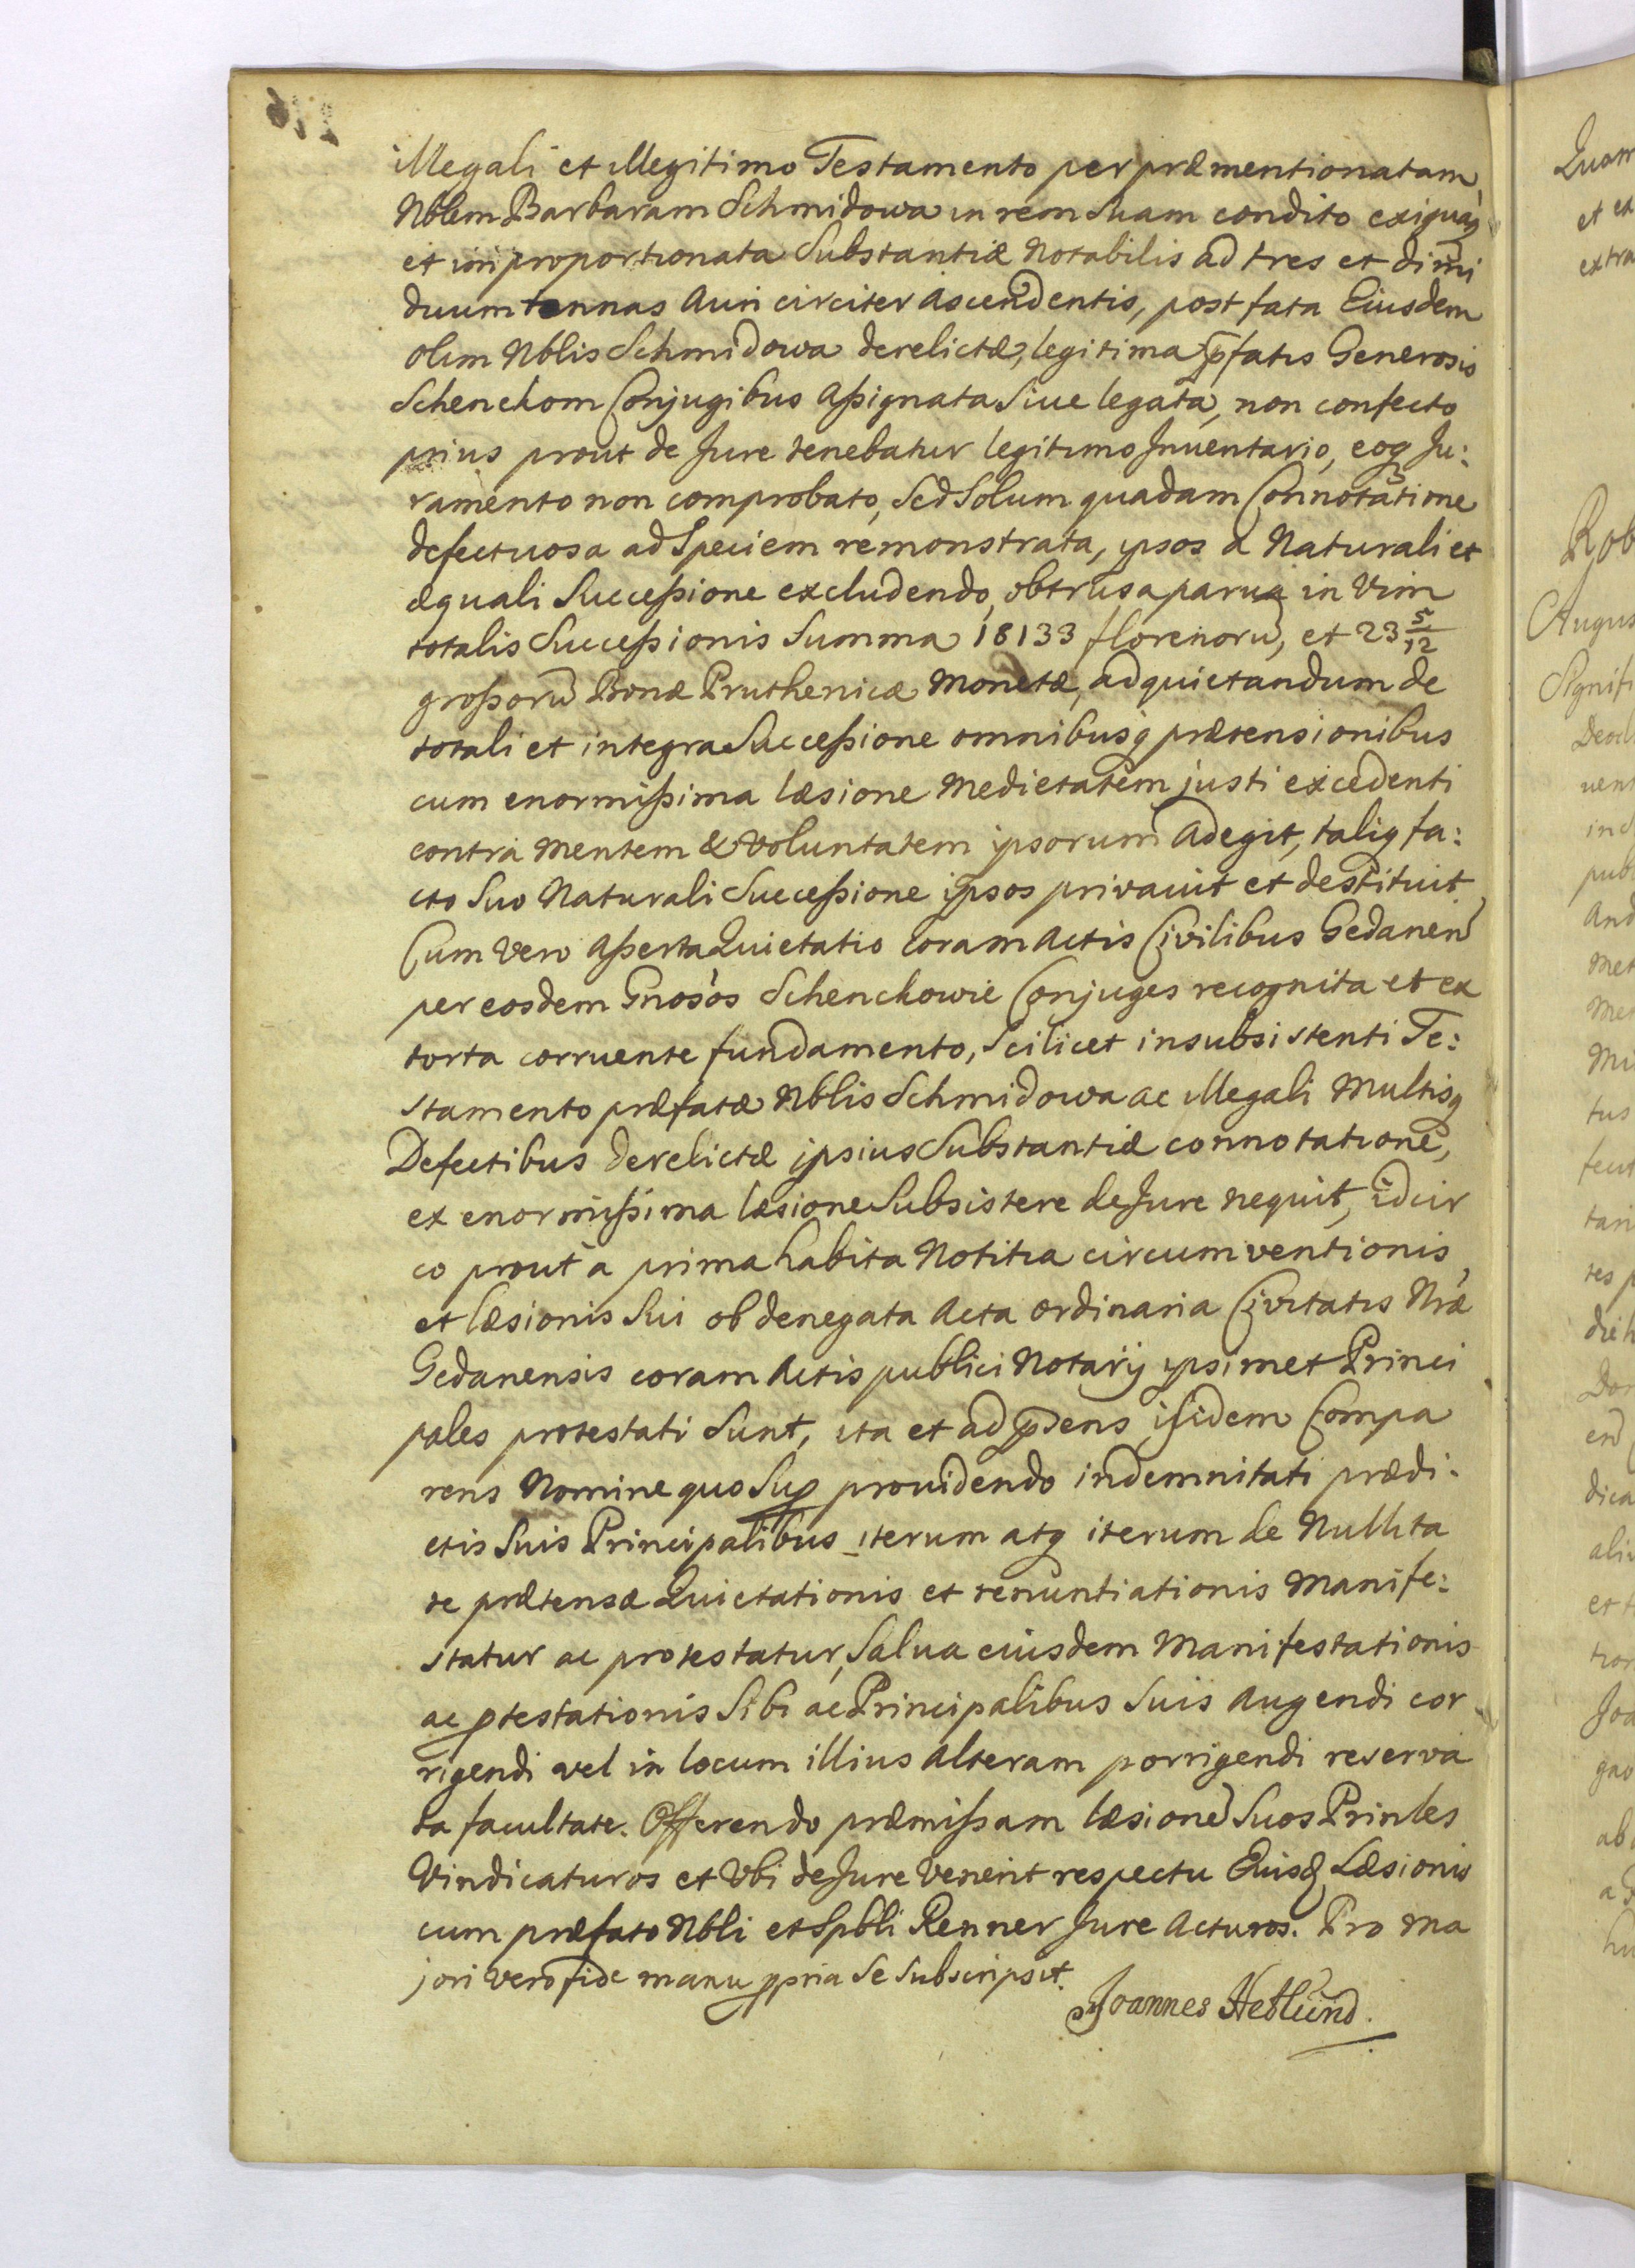 illegali et illegitimo Testamento per præmentionatam
Nblem Barbaram Schmidowa in rem suam condito exiguaq
et improportionata Substantiæ Notabilis ad tres et dimi
duum tonnas Auri circiter Ascendentis, post fata Eiusdem
olim Nblis Schmidowa derelictæ, legitima pfatis Generosis
Schenckom Conjugibus Aßignata Siue legata, non confecto
prius prout de Jure tenebatur legitimo Jnuentario, eoq Ju:
ramento non comprobato, Sed Solum quadam Connotatione
defectuosa ad Speciem remonstrata, ipsos a Naturali et
æquali Succeßione excludendo, obtrusa paruaq in Vim
totalis Succeßionis Summa 18133 florenorũ, et 23 5/12
großorũ Bonæ Pruthenicæ Monetæ, adquietandum de
totali et integra Succeßione omnibusq prætensionibus
cum enormißima læsione Medietatem justi excedenti
contra Mentem & Voluntatem ipsorum Adegit, taliq fa:
cto Suo Naturali Succeßione ipsos privauit et destituit
Cum Vero Aßerta Quietatio Coram Actis Civilibus Gedanen
per eosdem Gnosos Schenckowie Conjuges recognita et ex
torta corruente fundamento, Scilicet insubsistenti Te:
stamento præfatæ Nblis Schmidowa ac illegali Multisq
Defectibus derelictæ ipsius Substantiæ connotatione,
ex enormißima læsione Subsistere de Jure nequit, idcir
co prout à prima habita Notitia circumventionis
et læsionis Sui ob denegata Acta ordinaria Civitatis Nræ
Gedanensis coram Actis publici Notarij ipsimet Princi
pales protestati Sunt, ita et ad psens isidem Compa
rens Nomine quo Sup prouidendo indemnitati prædi:
ctis Suis Principalibus iterum atq iterum de Nullita
te prætensæ Quietationis et renuntiationis Manife:
statur ac protestatur, Salua eiusdem Manifestationis
ac ptestationis Sibi ac Principalibus Suis Augendi cor
rigendi vel in locum illius Alteram porrigendi reserva
ta facultate. Offerendo præmißam læsionē Suos Prinles
Vindicaturos et Vbi de Jure Venerit respectu Eiusd Læsionis
cum præfato Nbli et Spbli Renner Jure Acturos. Pro Ma
jori Vero fide manu ppria Se Subscripsit.
Joannes Hedlund.